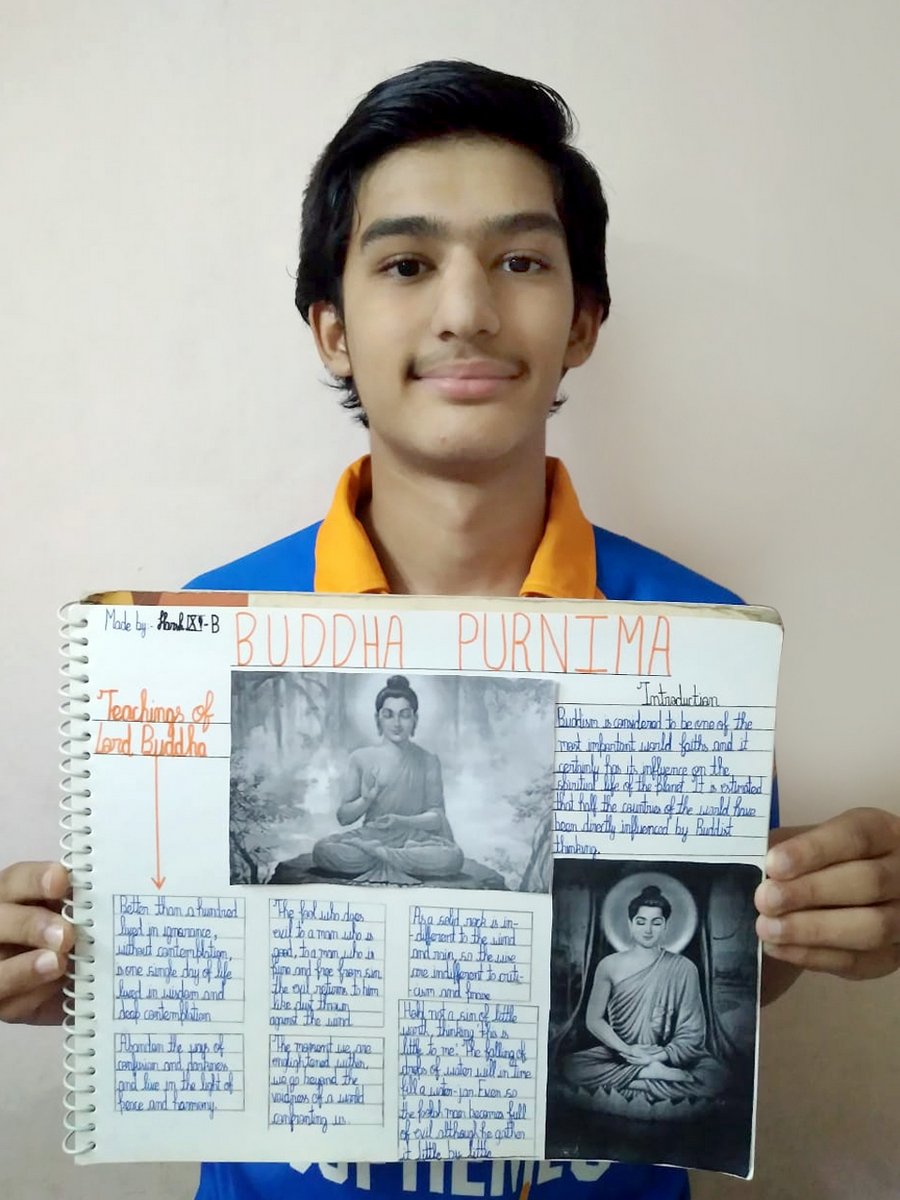 Made by:- Harsh XI-B
BUDDHA PURNIMA
Teachings of
Lord Buddha
Introduction
Buddism is considered to be one of the
most important world faiths and it
certainly has its influence on the
spiritual life of the planet. It is estimated
that half the countries of the world have
been directly influenced by Buddist
thinking.
Better than a hundred
lived in ignorance,
without contemplation,
is one single day of life
lived in wisdom and
deep contemplation
Abandon the ways of
confusion and darkness
and live in the light of
peace and harmony.
The fool who does
evil to a man who is
good, to a man who is
pure and free from sin
the evil returns to him
like dust thrown
against the wind
The moment we are
enlightened within,
we go beyond the
voidness of a world
confronting us.
As a solid rock is in-
-different to the wind
and rain, so the wise
are indifferent to criti-
-cism and
Hold not a sin of little
worth, thinking 'this is
little to me'. The falling of
drops of water will in time
fill a water-jar. Even so
the foolish man becomes full
of evil although he gather
it little by little